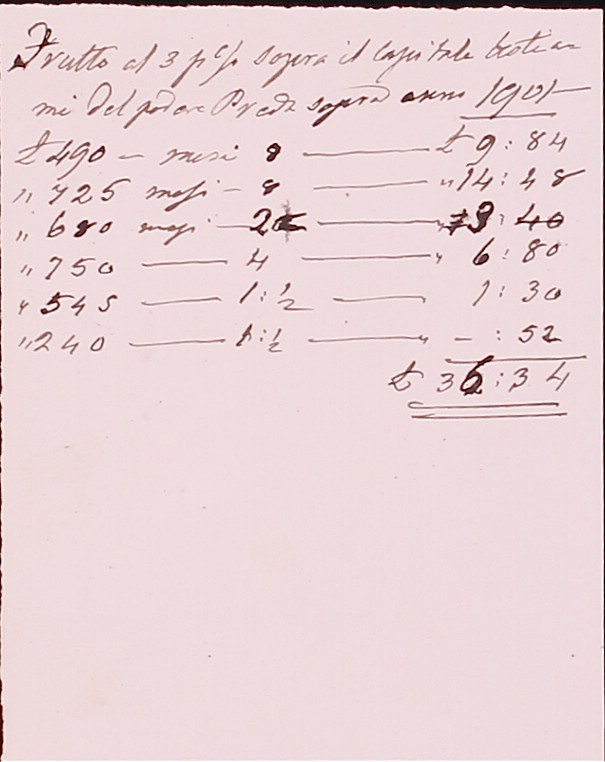 Frutto al 3 p% sopra il Capitale bestia=
mi del podere Preda sopra anno 1901
£ 490 — mesi 8 —— £ 9:84
" 725 mesi — 8 —— " 14:48
" 680 mesi — 2 —— " 3:40
" 750 —— 4 —— " 6:80
" 545 —— 1:½ —— 1:30
" 240 —— 1:½ —— " —:52
£ 36:34